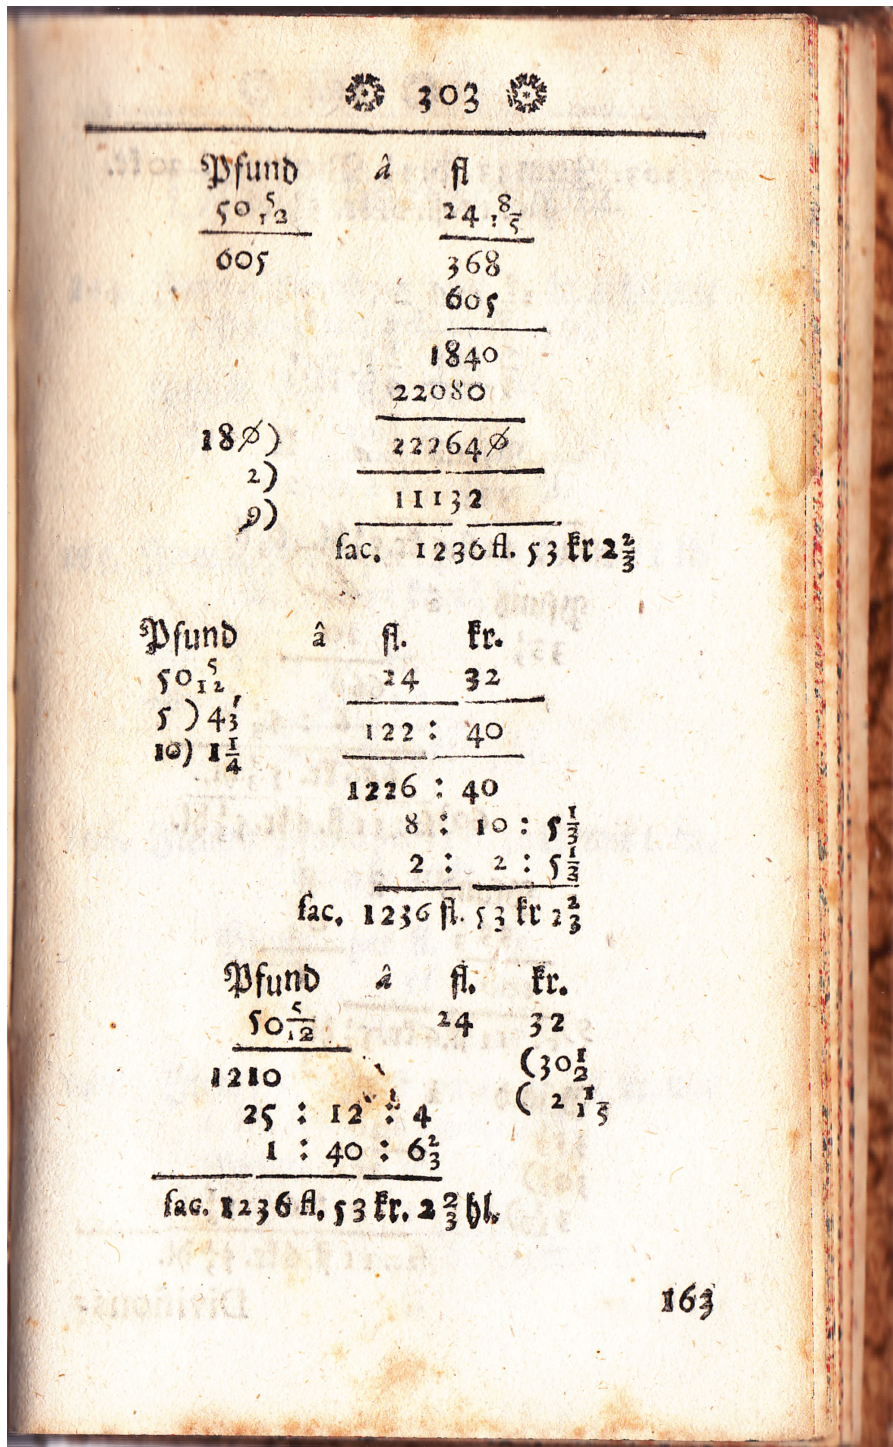 303
Pfund â fl
50 5/12 24 8/15
605 368
605
1840
22080
180) 222640
2)
9) 11132
fac. 1236 fl. 53 kr 2 2/3
Pfund â fl. kr.
50 5/12 24 32
5 ) 4 1/3 122 : 40
10) 1 1/4
1226 : 40
8 : 10 : 5 1/3
2 : 2 : 5 1/3
fac. 1236 fl. 53 kr 2 2/3
Pfund â fl. kr.
50 5/12 24 32
(30 1/2
1210
25 : 12 : 4 ( 2 1/15
1 : 40 : 6 2/3
fac. 1236 fl. 53 kr. 2 2/3 hl.
163